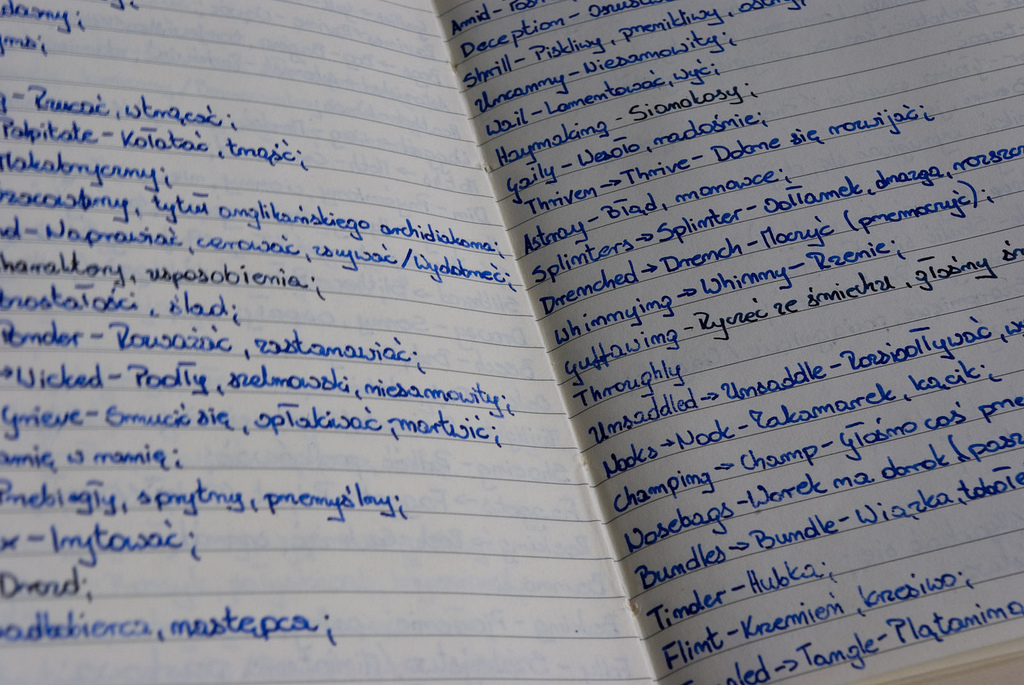 Rzucać, wtrącać;
Palpitate - Kołatać, tnąść;
Makabryczny;
, tytuł anglikańskiego archidiakona;
Naprawiać, cerować, zszywać / Wydobrzeć;
charaktery, usposobienia;
, ślad;
Ponder - Rozważać, zastanawiać;
→ Wicked - Podły, szelmowski, niesamowity;
Grieve - Smucić się, opłakiwać, martwić;
w mannię;
Przebiegły, sprytny, przemyślny;
x - Irytować;
Drozd;
, następca;
Amid -
Deception -
Shrill - Piskliwy, przenikliwy,
Uncanny - Niesamowity;
Wail - Lamentować, wyć;
Haymaking - Sianokosy;
Gaily - Wesoło, radośnie;
Thriven → Thrive - Dobrze się rozwijać;
Astray - Błąd, manowce;
Splinters → Splinter - Odłamek, drzazga,
Drenched → Drench - Moczyć (przemoczyć);
Whinnying → Whinny - Rżenie;
Guffawing - Ryczeć ze śmiechu, głośny
Throughly
Unsaddled → Unsaddle - Rozsiodływać,
Nooks → Nook - Zakamarek, kącik;
Champing → Champ - Głośno coś
Nosebags - Worek na obrok
Bundles → Bundle - Wiązka,
Tinder - Hubka;
Flint - Krzemień, krzesiwo;
→ Tangle - Plątanina